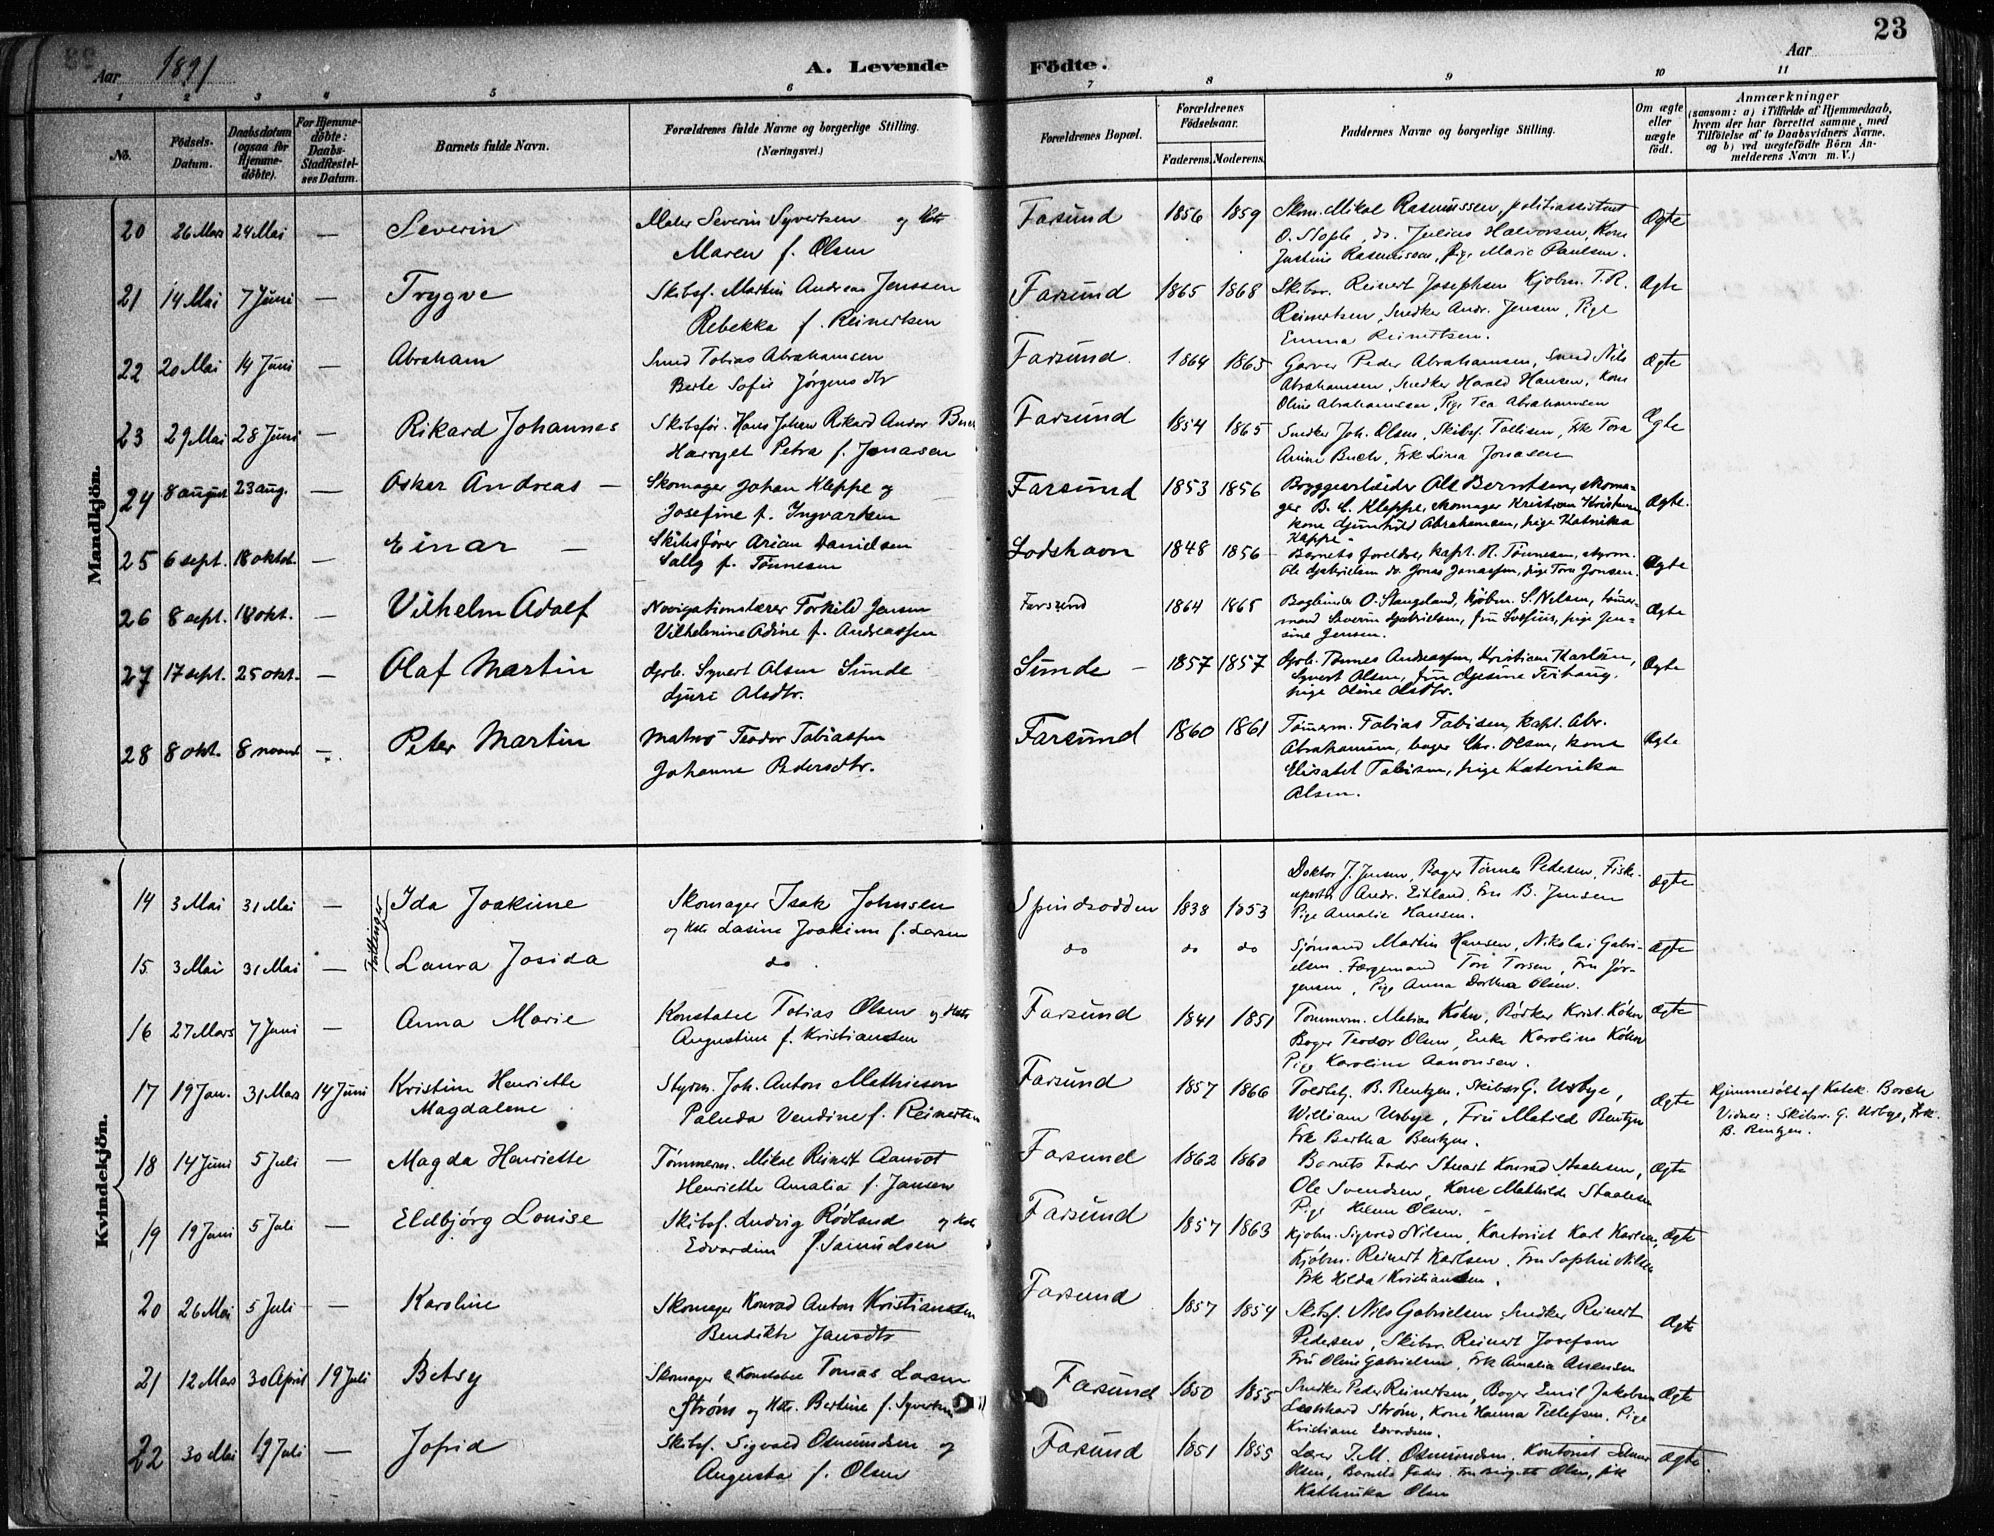 23
Aar 1891
A. Levende Födte.
Aar
1 2 3 4 5 6 7 8 9 10 11
No.
Födsels-Datum.
Daabsdatum (ogsaa for Hjemmedöbte).
For Hjemmedöbte: Daabs-Stadfestelses Datum.
Barnets fulde Navn.
Forældrenes fulde Navne og borgerlige Stilling.
(Næringsvei.)
Forældrenes Bopæl.
Forældrenes Födselsaar.
Faderens. Moderens.
Faddernes Navne og borgerlige Stilling.
Om ægte eller uægte födt.
Anmærkninger
(saasom: a) i Tilfælde af Hjemmedaab, hvem der har forrettet samme, med Tilföielse af to Daabsvidners Navne, og b) ved uegtefödte Börn Anmelderens Navn m. V.)
Mandkjön.
20 26 Mars 24 Mai — Severin
Maler Severin Syvertsen og Kone
Maren f. Olsen
Farsund 1856 1859
Skom. Mikal Rasmussen, politiassistent
O. Stople, do. Julius Halvorsen, Kone
Justine Rasmussen, Pige Marie Paulsen.
Ægte
21 14 Mai 7 Juni — Trygve
Skibsf. Martin Andreas Jenssen
Rebekka f. Reinertsen
Farsund 1865 1868
Skibsr. Reinert Josephsen Kjøbm. T. R.
Reinertsen, Snedker Andr. Jensen, Pige
Emma Reinertsen.
Ægte
22 20 Mai 14 Juni — Abraham
Smed Tobias Abrahamsen
Berte Sofie Jørgensdtr
Farsund. 1864 1865
Garver Peder Abrahamsen, Smed Nils
Abrahamsen, Snedker Harald Hansen, Kone
Oline Abrahamsen, Pige Tea Abrahamsen
Ægte
23 29 Mai 28 Juni — Rikard Johannes
Skibsfør. Hans Johan Rikard Andor Buch
Harryet Petra f. Jonasen
Farsund 1854 1865
Snedker Joh. Olsen, Skibsf. Tallisen, Frk Tora
Amine Buch, Frk Lina Jonasen
Ægte
24 8 august 23 aug. — Oskar Andreas —
Skomager Johan Kleppe og
Josefine f. Ingvartsen
Farsund 1853 1856
Bryggearbeider Ole Berntsen, skoma-
ger B. C. Kleppe, skomager Kristian Kristensen
kone Gunhild Abrahamsen, pige Katrika
Kleppe.
Ægte.
25 6 sept. 18 oktob. — Einar —
Skibsfører Arian Danielsen
Sally f. Tønnesen
Lodshavn 1848 1856
Barnets foreldre, kapt. N. Tønnesen, styrm.
Ole Gabrielsen do. Jonas Jonassen, pige Tora Jonsen.
Ægte
26 8 sept. 18 okt. — Vilhelm Adolf
Navigationslærer Torkild Jensen
Vilhelmine Adine f. Andreassen
Farsund 1864 1865
Bogbinder O. Stangeland, kjøbm. S. Nilsen, tømmer-
mand Severin Gabrielsen, pige Jen-
sine Jensen.
Ægte
27 17 sept. 25 okt. — Olaf Martin
Grb. Syvert Olsen Sunde
Guri Olsdtr.
Sunde — 1857 1857
Grb. Tønnes Andreassen, Kristian Karlsen,
Syvert Olsen, fru Gesine
pige Oline Olsdtr.
Ægte
28 8 okt. 8 novemb — Peter Martin
Matros Teodor Tobiassen
Johanne Pedersdtr.
Farsund 1860 1861
Tømerm. Tobias Tobisen, kapt. Abr.
Abrahamsen, bager Chr. Olsen, kone
Elisabet Tobisen, pige Katerrika
Olsen.
Ægte
Kvindekjön.
Tvillinger
14 3 Mai 31 Mai — Ida Joakime
Skomager Isak Johnsen
og Kst. Lasine Joakime f. Larsen
Spindsodden 1838 1853
Doktor J. Jensen, Bager Tønnes Pedersen, Fiske-
exportør Andr. Eikland, Fru B. Jensen
Pige Amalie Hansen.
Ægte
15 3 Mai 31 Mai — Laura Josida
do.
do do do
Sjømand Martin Hansen, Nikolai Gabri-
elsen. Færgemand Tore Torsen, Fru Jør-
gensen, Pige Anna Dorthea Olsen.
Ægte
16 27 Mars 7 Juni — Anna Marie
Konstabel Tobias Olsen og Kst.
Augustine f. Kristiansen
Farsund 1841 1851
Tømmerm. Matias Köhn, Bødker Krist. Köhn
Bager Teodor Olsen, Enke Karoline Köhn
Pige Karoline Aanonsen.
Ægte
17 19 Jan. 31 Mars 14 Juni Kristine Henriette
Magdalene
Styrm. Joh. Anton Mathiesen
Paluda Vendine f. Reinertsen
Farsund 1857 1866
Toldbetj. B. Bentzen, Skibsr G. Usbye,
William Usbye, Fru Matild Bentzen
Frk Bertha Bentzen.
Ægte
Hjemmedøbt af Katek. Borch
Vidner: Skibsr. G. Usbye, Frk.
B. Bentzen.
18 14 Juni 5 Juli — Magda Henriette
Tømmerm. Mikal Reinert Aanrot
Henriette Amalia f. Jansen
Farsund 1862 1860
Barnets Fader Stuart Konrad Staalesen,
Ole Svendsen, Kone Mathilde Staalesen
Pige Helene Olsen. —
Ægte
19 19 Juni 5 Juli — Eldbjørg Louise
Skibsf. Ludvig Rødland og Kst.
Edvardine f. Samuelsen
Farsund 1857 1863
Kjøbm. Sigvald Nilsen, Kontorist Karl Karlsen,
Kjøbm. Reinert Karlsen. Fru Sophie Nilsen
Frk Hilda Kristiansen.
Ægte
20 26 Mai 5 Juli — Karoline
Skomager Konrad Anton Kristiansen
Bendikte Jansdtr
Farsund 1857 1854
Skibsf. Nils Gabrielsen, Snedker Reinert
Pedersen, Skibsr. Reinert Josefsen
Fru Oline Gabrielsen, Frk Amalia Anensen
Ægte
21 12 Mars 30 April 19 Juli Betsy
Skomager & Konstabel Tomas Larsen
Strøm og Kst. Bertine f. Syvertsen
Farsund 1850 1855
Snedker Peder Reinertsen, Bager Emil Jakobsen
Leonhard Strøm, Kone Hanna Tellefsen. Pige
Kristiane Edvardsen.
Ægte
22 30 Mai 19 Juli — Jofrid
Skibsf. Sigvald Osmundsen og
Augusta f. Olsen
Farsund 1851 1855
Lærer T. M. Osmundsen. Kontorist
Olsen, Barnets Fader. Fru Birgitte Olsen, frk
Kathinka Olsen
Ægte.